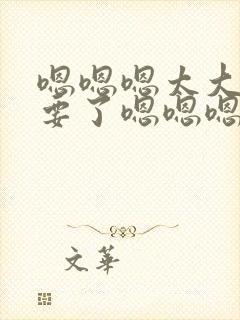 嗯嗯嗯太大
要了嗯嗯嗯
文華